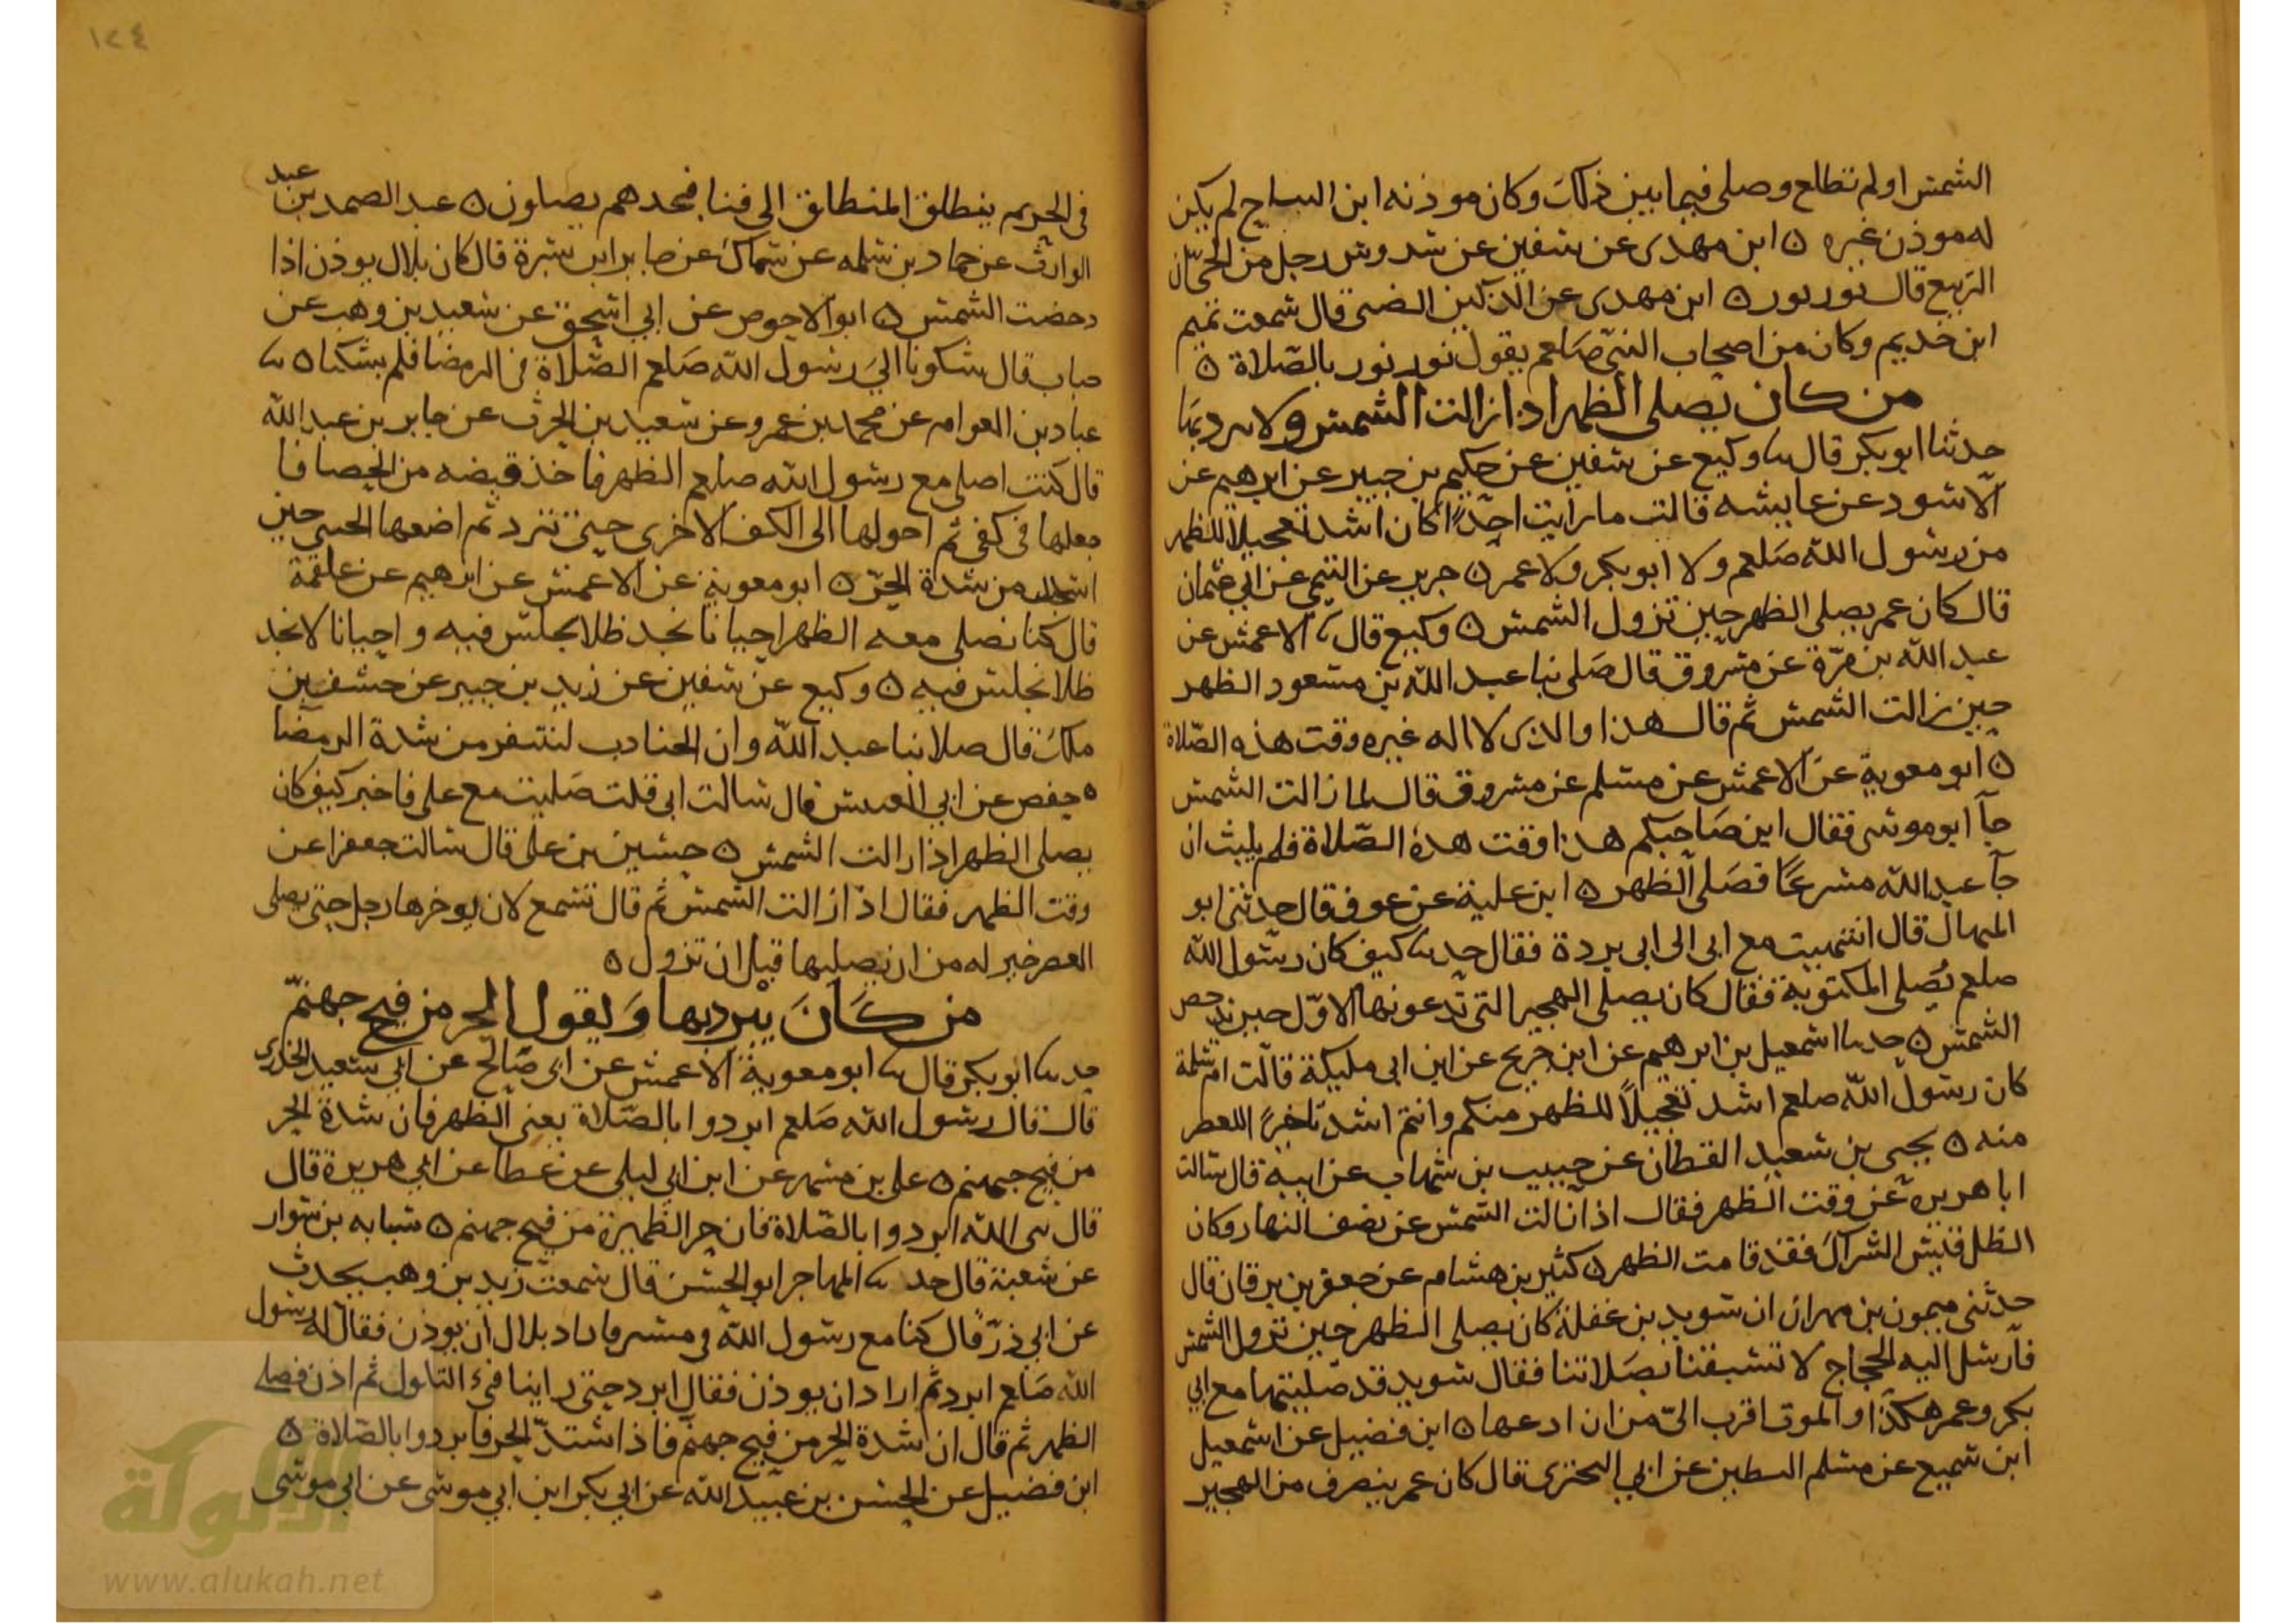 الشمس او لم تطلع وصلى فيما بين ذلك وكان موذنه ابن النباح لم يكن
له موذن غيره ○ ابن مهدى عن سفين عن سدوس رجل من الحى ان
الربيع قال نور نور ○ ابن مهدى عن الضبى قال سمعت تميم
ابن حذيم وكان من اصحاب النبى صلعم يقول نور نور بالصلاة ○
من كان يصلى الظهر اذا زالت الشمس ولا يبرد بها
حدثنا ابو بكر قال نا وكيع عن سفين عن حكيم بن جبير عن ابرهيم عن
الاسود عن عايشه قالت ما رايت احدًا كان اشد تعجيلا للظهر
من رسول الله صلعم ولا ابو بكر ولا عمر ○ جرير عن التيمى عن ابي عثمان
قال كان عمر يصلى الظهر حين تزول الشمس ○ وكيع قال نا الاعمش عن
عبد الله بن مرّة عن مسروق قال صلى بنا عبد الله بن مسعود الظهر
حين زالت الشمس ثم قال هذا والذى لا اله غيره وقت هذه الصلاة
○ ابو معوية عن الاعمش عن مسلم عن مسروق قال لما زالت الشمس
جآ ابو موسى فقال اين صاحبكم هذا وقت هذه الصلاة فلم يلبث ان
جآ عبد الله مسرعًا فصلى الظهر ○ ابن علية عن عوف قال حدثنى ابو
المنهال قال انتهيت مع ابى الى ابى بردة فقال حدثنا كيف كان رسول الله
صلعم يُصلى المكتوبة فقال كان يصلى الهجير التى تدعونها الاوّل حين تدحض
الشمس ○ حدثنا اسمعيل بن ابرهيم عن ابن جريج عن ابن ابى مليكة قالت ام سلمة
كان رسول الله صلعم اشد تعجيلاً للظهر منكم وانتم اشد تاخيرًا للعصر
منه ○ يحيى بن سعيد القطان عن حبيب بن شهاب عن ابيه قال سالت
ابا هريرة عن وقت الظهر فقال اذا زالت الشمس عن نصف النهار وكان
الظل قيس الشراك فقد قامت الظهر ○ كثير بن هشام عن جعفر بن برقان قال
حدثنى ميمون بن مهران ان سويد بن غفلة كان يصلى الظهر حين تزول الشمس
فارسل اليه الحجاج لا تسبقنا بصلاتنا فقال سويد قد صليتها مع ابي
بكر وعمر هكذا والموت اقرب الىّ من ان ادعها ○ ابن فضيل عن اسمعيل
ابن سميع عن مسلم البطين عن ابي البخترى قال كان عمر ينصرف من الهجير
١٢٤
فى الحر ثم ينطلق المنطلق الى قبا فيجدهم يصلون ○ عبد الصمد بن عبد
الوارث عن حماد بن سلمه عن سماك عن جابر ابن سمرة قال كان بلال يوذن اذا
دحضت الشمس ○ ابو الاحوص عن ابي اسحق عن سعيد بن وهب عن
خباب قال شكونا الى رسول الله صلعم الصلاة فى الرمضا فلم يشكنا ○ نا
عباد بن العوام عن محمد بن عمرو عن سعيد بن الحرث عن جابر بن عبد الله
قال كنت اصلى مع رسول الله صلعم الظهر فاخذ قبضه من الحصا فا
جعلها فى كفى ثم احولها الى الكف الاخرى حتى تبرد ثم اضعها لجبينى حين
اسجد من شدة الحرّ ○ ابو معوية عن الاعمش عن ابرهيم عن علقمة
قال كنا نصلى معه الظهر احيانا نجد ظلا نجلس فيه واحيانا لا نجد
ظلا نجلس فيه ○ وكيع عن سفين عن زيد بن جبير عن خشف بن
ملك قال صلا بنا عبد الله وان الجنادب لتنقر من شدة الرمضا
○ حفص عن ابي العنبس قال سالت ابى قلت صليت مع على فاخبر كيف كان
يصلى الظهر اذا زالت الشمس ○ حسين بن على قال سالت جعفرا عن
وقت الظهر فقال اذا زالت الشمس ثم قال تسمع لان يوخرها رجل حتى يصلى
العصر خير له من ان يصليها قبل ان تزول ○
من كَانَ يبْرد بها وَيقول الحر من فيح جهنمّ
حدثنا ابو بكر قال نا ابو معوية الاعمش عن ابى صالح عن ابي سعيد الخدرى
قال قال رسول الله صلعم ابردوا بالصلاة يعنى الظهر فان شدة الحر
من فيح جهنم ○ على بن مسهر عن ابن ابي ليلى عن عطا عن ابي هريرة قال
قال نبى الله ابردوا بالصلاة فان حر الظهيرة من فيح جهنم ○ شبابه بن سوار
عن شعبة قال حدثنا المهاجر ابو الحسن قال سمعت زيد بن وهب يحدث
عن ابي ذرّ قال كنا مع رسول الله فى مسير فاراد بلال ان يوذن فقال له رسول
الله صلعم ابرد ثم اراد ان يوذن فقال ابرد حتى راينا فىء التلول ثم اذن فصلى
الظهر ثم قال ان شدة الحر من فيح جهنم فاذا اشتدّ الحر فابردوا بالصلاة ○
ابن فضيل عن الحسن بن عبيد الله عن ابي بكر ابن ابي موسى عن ابي موسى
الألوكة
www.alukah.net